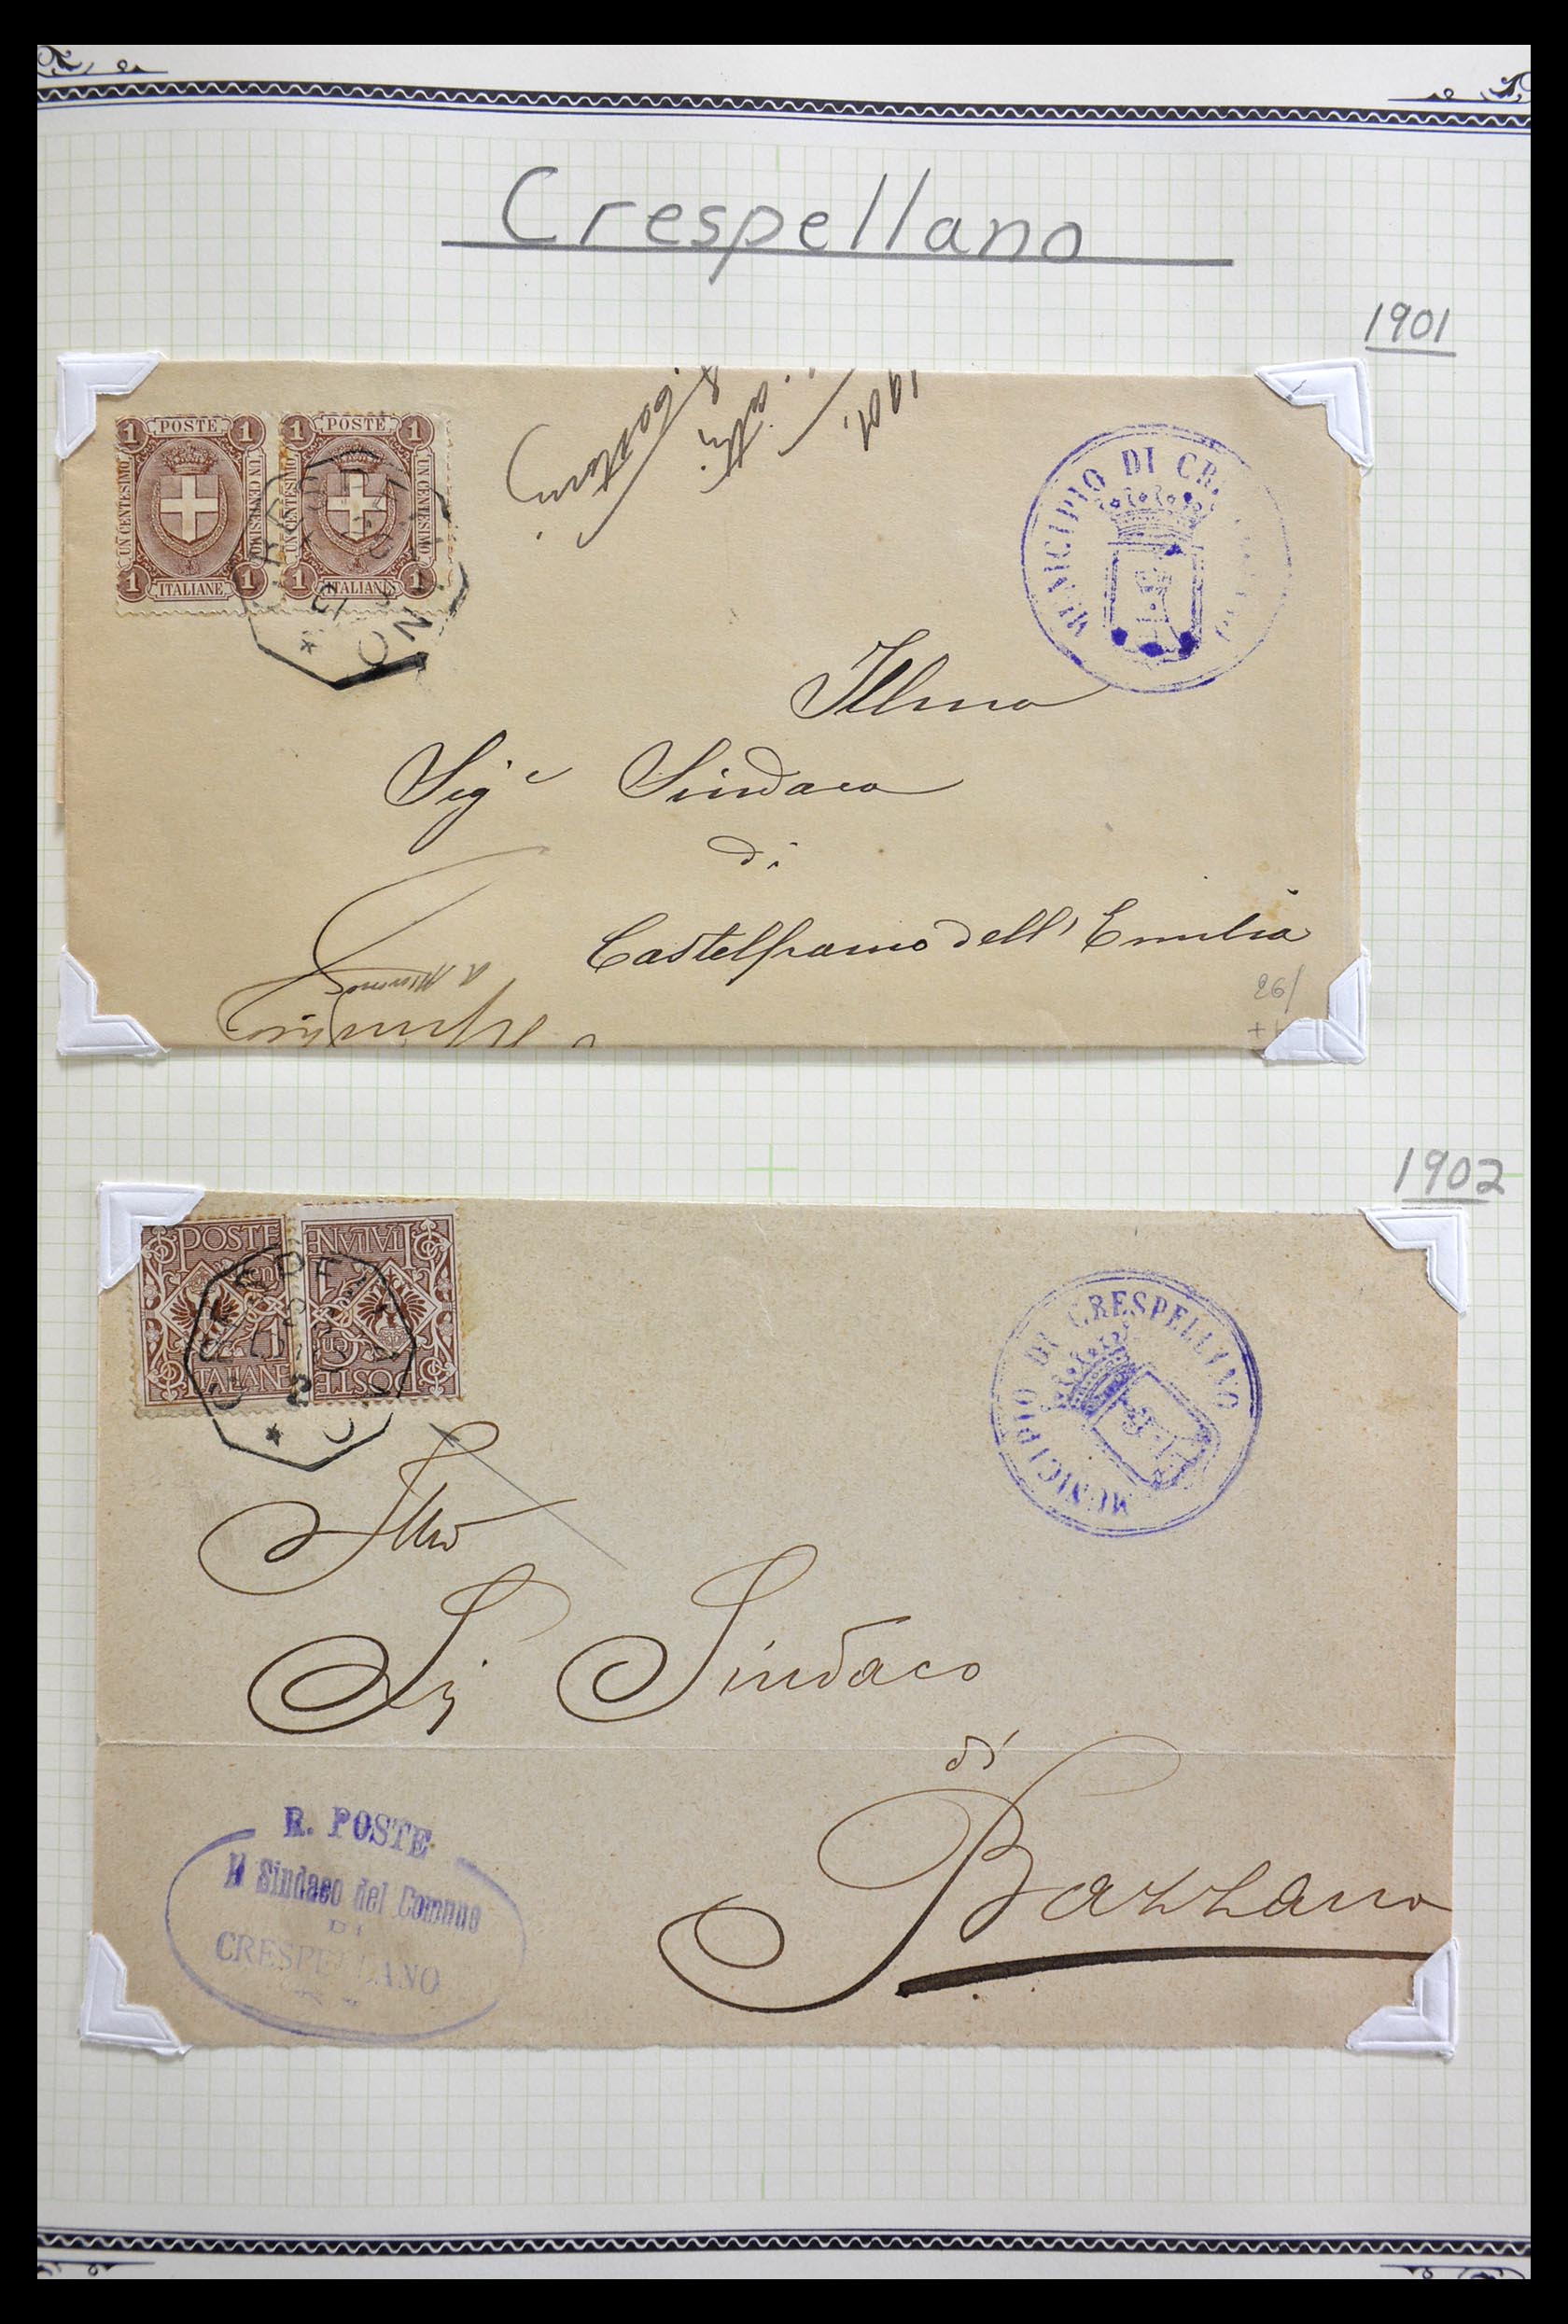 Crespellano
1901
POSTE
1 1
UN CENTESIMO UN CENTESIMO
1 1
ITALIANE
POSTE
1 1
UN CENTESIMO UN CENTESIMO
1 1
ITALIANE
1901.
MUNICIPIO DI CR
Illmo
Sigr Sindaco
di
Castelfranco dell'Emilia
26/
1902
POSTE
ITALIANE
ITALIANE
POSTE
MUNICIPIO DI CRESPELLANO
Illmo
Sig Sindaco
di
Bazzano
R. POSTE
Il Sindaco del Comune
DI
CRESPELLANO